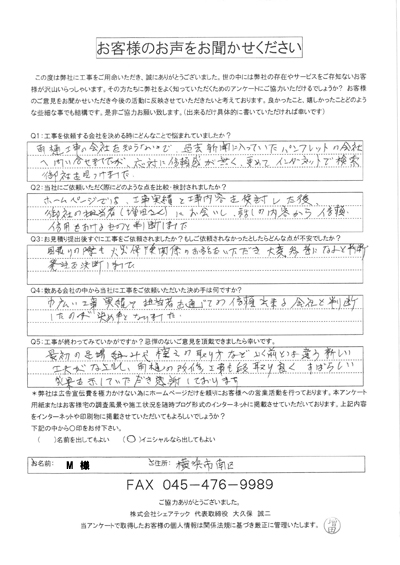 お客様のお声をお聞かせください
この度は弊社に工事をご用命いただき、誠にありがとうございました。世の中には弊社の存在やサービスをご存知ないお客
様が沢山いらっしゃいます。その方たちに弊社をよく知っていただくためのアンケートにご協力いただけるでしょうか?お客様
のご意見をお聞かせいただき今後の活動に反映させていただきたいと考えております。良かったこと、嬉しかったことどのよう
な些細な事でも結構です。是非ご協力お願い致します。(出来るだけ具体的に書いていただければ幸いです)
Q1:工事を依頼する会社を決める時にどんなことで悩まれていましたか?
雨樋工事の会社を知らないので、過去新聞に入っていたパンフレットの会社
へ問い合せましたが、応対に信頼感が無く、改めてインターネットで検索
御社を見つけました
Q2:当社にご依頼いただく際にどのような点を比較・検討されましたか?
ホームページでは、工事実績と工事内容を検討した後、
御社の担当者(増田さん)にお会いし、話しの内容から信頼、
信用をおけるものと判断しました
Q3:お見積り提出後すぐに工事をご依頼されましたか?もしご依頼されなかったとしたらどんな点が不安でしたか?
見積りの際も火災保険関係の
Q4:数ある会社の中から当社に工事をご依頼いただいた決め手は何ですか?
巾広い工事実績で担当者を通じての信頼出来る会社と判断
したのが決め手となりました
Q5:工事が終わってみていかがですか?忌憚のないご意見を頂戴できましたら幸いです。
最初の足場組みや
※弊社は広告宣伝費を極力かけない為にホームページだけを頼りにお客様への営業活動を行っております。本アンケート
用紙またはお客様宅の調査風景や施工状況を随時ブログ形式のインターネットに掲載させていただいております。上記内容
をインターネットや印刷物に掲載させていただいてもよろしいでしょうか?
下記の中から○印をお付下さい。
( )名前を出してもよい (○)イニシャルなら出してもよい
お名前: M 様 ご住所: 横浜市南区
FAX 045-476-9989
ご協力ありがとうございました。
株式会社シェアテック 代表取締役 大久保 誠二
当アンケートで取得したお客様の個人情報は関係法規に基づき厳正に管理いたします。